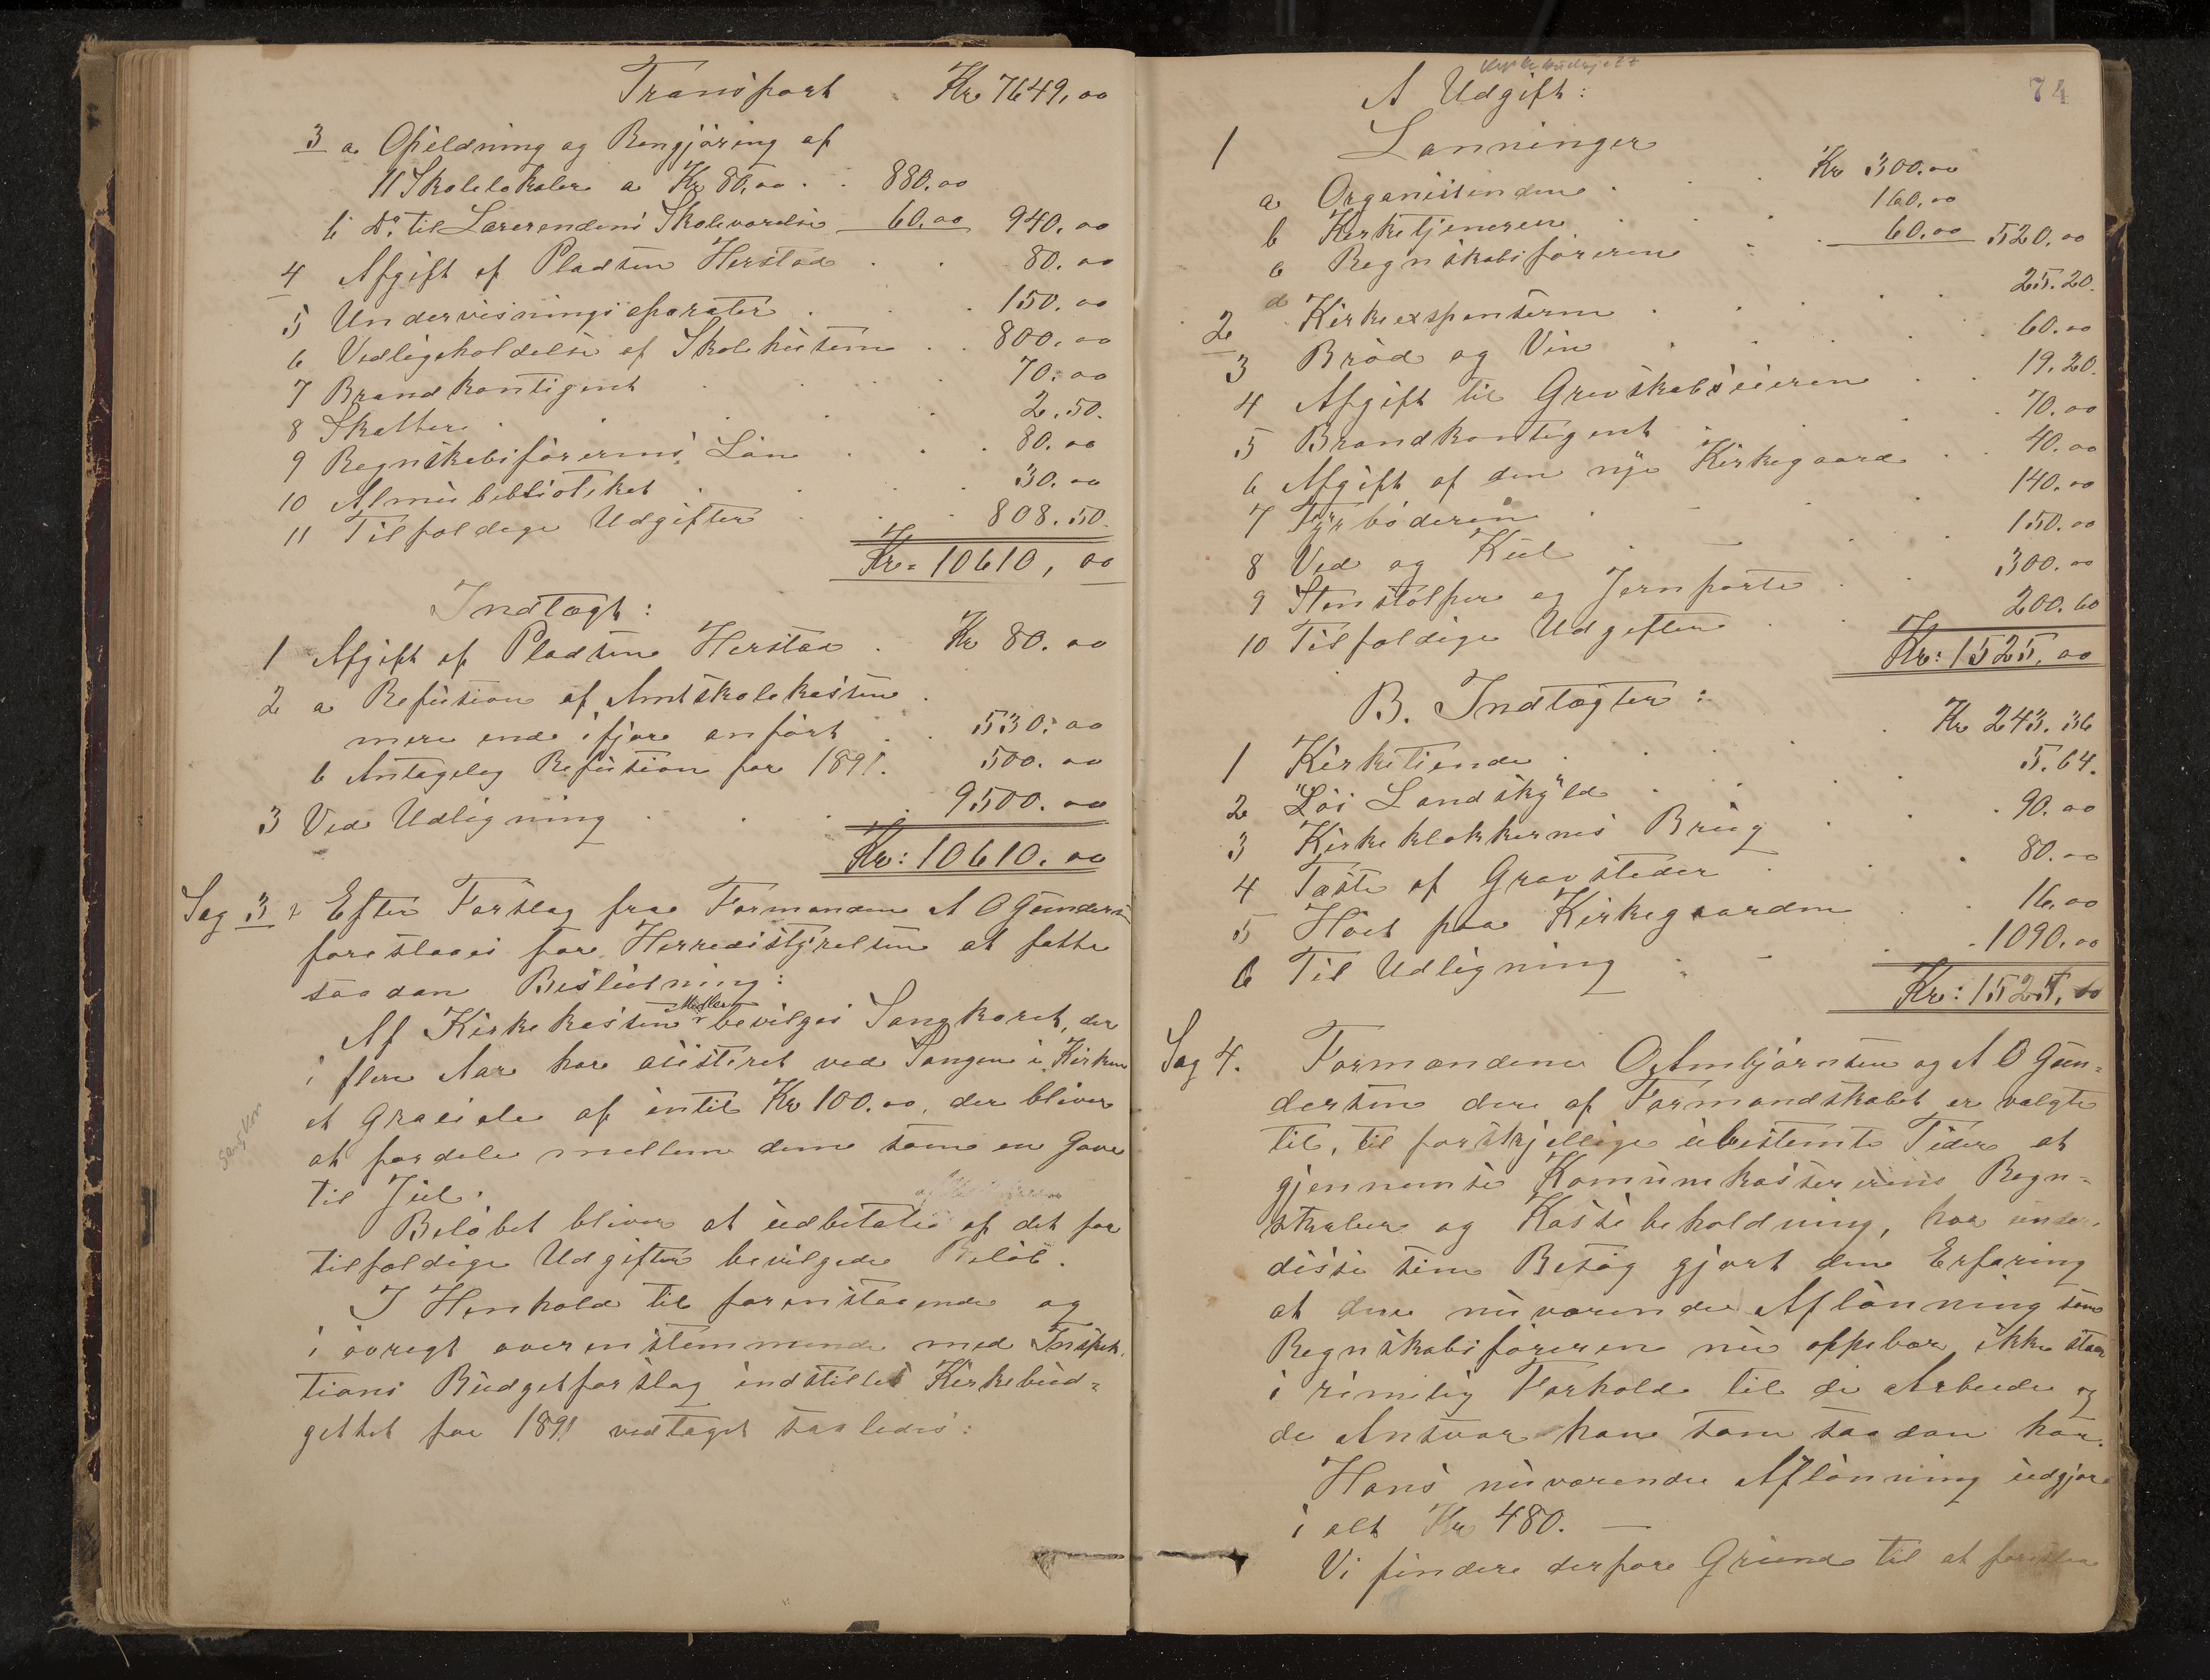 Transport . Kr 7649,00
3 a Opildning og Rengjöring af
11 Skolelokaler a Kr 80,00 . . 880.00
b do. til Lærerendens Skoleværelse 60.00 940.00
4 Afgift af Pladsen Herstad . . 80.00
5 Undervisningsaparater . . . 150.00
6 Vedligeholdelse af Skolehusene . . 800.00
7 Brandkontigent . . . . 70.00
8 Skatter . . . . . 2.50.
9 Regnskabsförerens Lön . . . 80.00
10 Almuebiblioteket . . . . 30.00
11 Tilfældige Udgifter . . . 808.50.
Kr. 10610, 00
Indtægt:
1 Afgift af Pladsen Herstad . Kr 80.00
2 a Refusion af Amtskolekassen .
mere end ifjor anfört . . 530.00
b Antagelig Refusion for 1891. 500.00
3 Ved Udligning . . . . 9500.00
Kr: 10610.00
Sag 3 Efter Forslag fra Formanden A O Gunders
foreslaaes for Herredsstyrelsen at fatte
saadan Beslutning:
Af Kirkekassen Midler bevilges Sangkoret, der
i flere Aar har asisteret ved Sangen i Kirken
et Graciale af intil Kr 100.00, der bliver
at fordele mellem dem som en Gave
til Jul.
Belöbet bliver at udbetale af det for
tilfældige Udgifter bevilgede Belöb.
I Henhold til foranstaaende og
i övrigt overenstemmende med Inspek.
tions Budgetforslag indstilles Kirkebud=
gettet for 1891 vedtaget saaledes:
Sangkor
Kirkebudsjett
74
A Udgift:
1 Lönninger
a Organistinden . . . Kr 300.00
b Kirketjeneren . . . 160.00
c Regnskabsföreren . . 60.00 520.00
d
2 Kirkeexspenserne . . . . . 25.20.
3 Bröd og Vin . . . . . 60.00
4 Afgift til Grevskabseieren . . 19.20.
5 Brandkontigent . . . . 70.00
6 Afgift af den nye Kirkegaard . . 40.00
7 Fyrböderen . . . 140.00
8 Ved og Kul . . . . 150.00
9 Stenstolper og Jernporte . . 300.00
10 Tilfældige Udgifter . . 200.60
Kr: 1525.00
B. Indtægter:
1 Kirketiende . . . . . Kr 243.36
2 "Lös Landskyld" . . . . 5.64.
3 Kirkeklokkernes Brug . . . 90.00
4 Fæste af Gravsteder . . . 80.00
5 Höet paa Kirkegaarden . . 16.00
6 Til Udligning . . . . 1090.00
Kr: 1525,00
Sag 4. Formændene O. Ambjörnsen og A O Gun=
dersen der af Formandskabet er valgte
til, til forskjellige ubestemte Tider at
gjennemse Komunekassererens Regn=
skaber og Kassebeholdning, har under
disse sine Besög gjort den Erfaring
at den nuværende Aflönning som
Regnskabsföreren nu oppebær ikke staar
i rimelig Forhold til de Arbeide og
de Ansvar han som saadan har.
Hans nuværende Aflönning udgjör
i alt Kr 480. —
Vi finder derfor Grund til at foreslaa